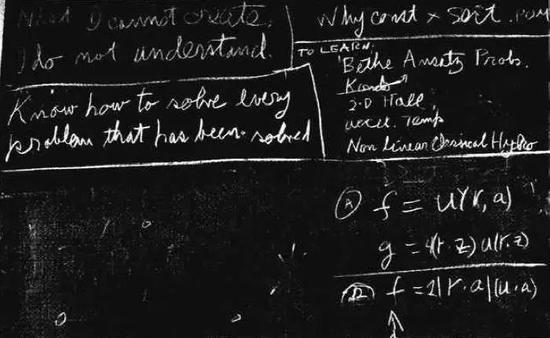 What I cannot create,
I do not understand.
Know how to solve every
problem that has been solved
Why const × sort
TO LEARN:
Bethe Ansatz Probs.
Kondo
2-D Hall
accel. Temp
Non Linear Classical Hydro
Ⓐ f = u(r, a)
g = 4(r·z) u(r, z)
f = 2|r·a|(u·a)